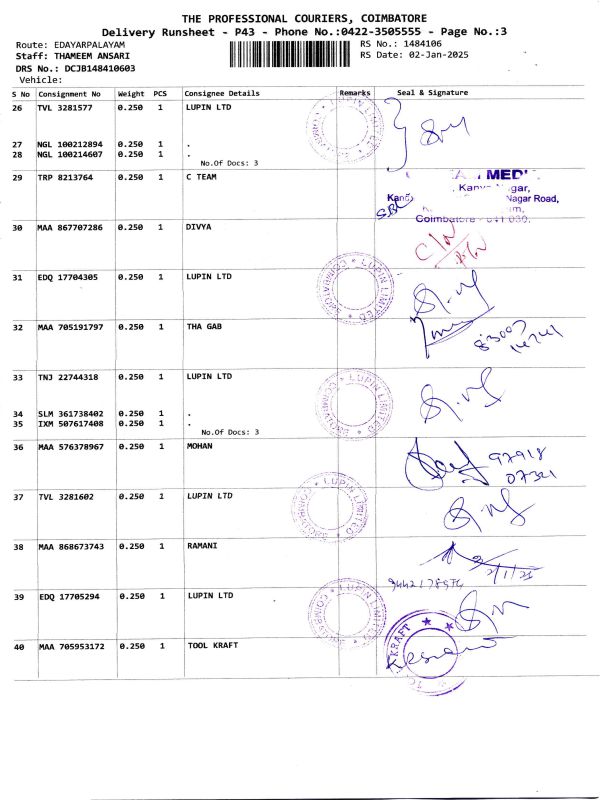 THE PROFESSIONAL COURIERS, COIMBATORE
Delivery Runsheet - P43 - Phone No.:0422-3505555 - Page No.:3
Route: EDAYARPALAYAM RS No.: 1484106
Staff: THAMEEM ANSARI RS Date: 02-Jan-2025
DRS No.: DCJB148410603
Vehicle:
S No Consignment No Weight PCS Consignee Details Remarks Seal & Signature
26 TVL 3281577 0.250 1 LUPIN LTD
LUPIN LIMITED
27 NGL 100212894 0.250 1 .
28 NGL 100214607 0.250 1 .
No.Of Docs: 3
29 TRP 8213764 0.250 1 C TEAM
MED
Nagar Road,
Coimbatore - 641 030.
30 MAA 867707286 0.250 1 DIVYA
31 EDQ 17704305 0.250 1 LUPIN LTD
LUPIN LIMITED COIMBATORE
32 MAA 705191797 0.250 1 THA GAB
33 TNJ 22744318 0.250 1 LUPIN LTD
LUPIN LIMITED
34 SLM 361738402 0.250 1 .
35 IXM 507617408 0.250 1 .
No.Of Docs: 3
36 MAA 576378967 0.250 1 MOHAN
97918
07321
37 TVL 3281602 0.250 1 LUPIN LTD
LUPIN LIMITED
38 MAA 868673743 0.250 1 RAMANI
2/1/25
39 EDQ 17705294 0.250 1 LUPIN LTD
LUPIN LIMITED
40 MAA 705953172 0.250 1 TOOL KRAFT
KRAFT